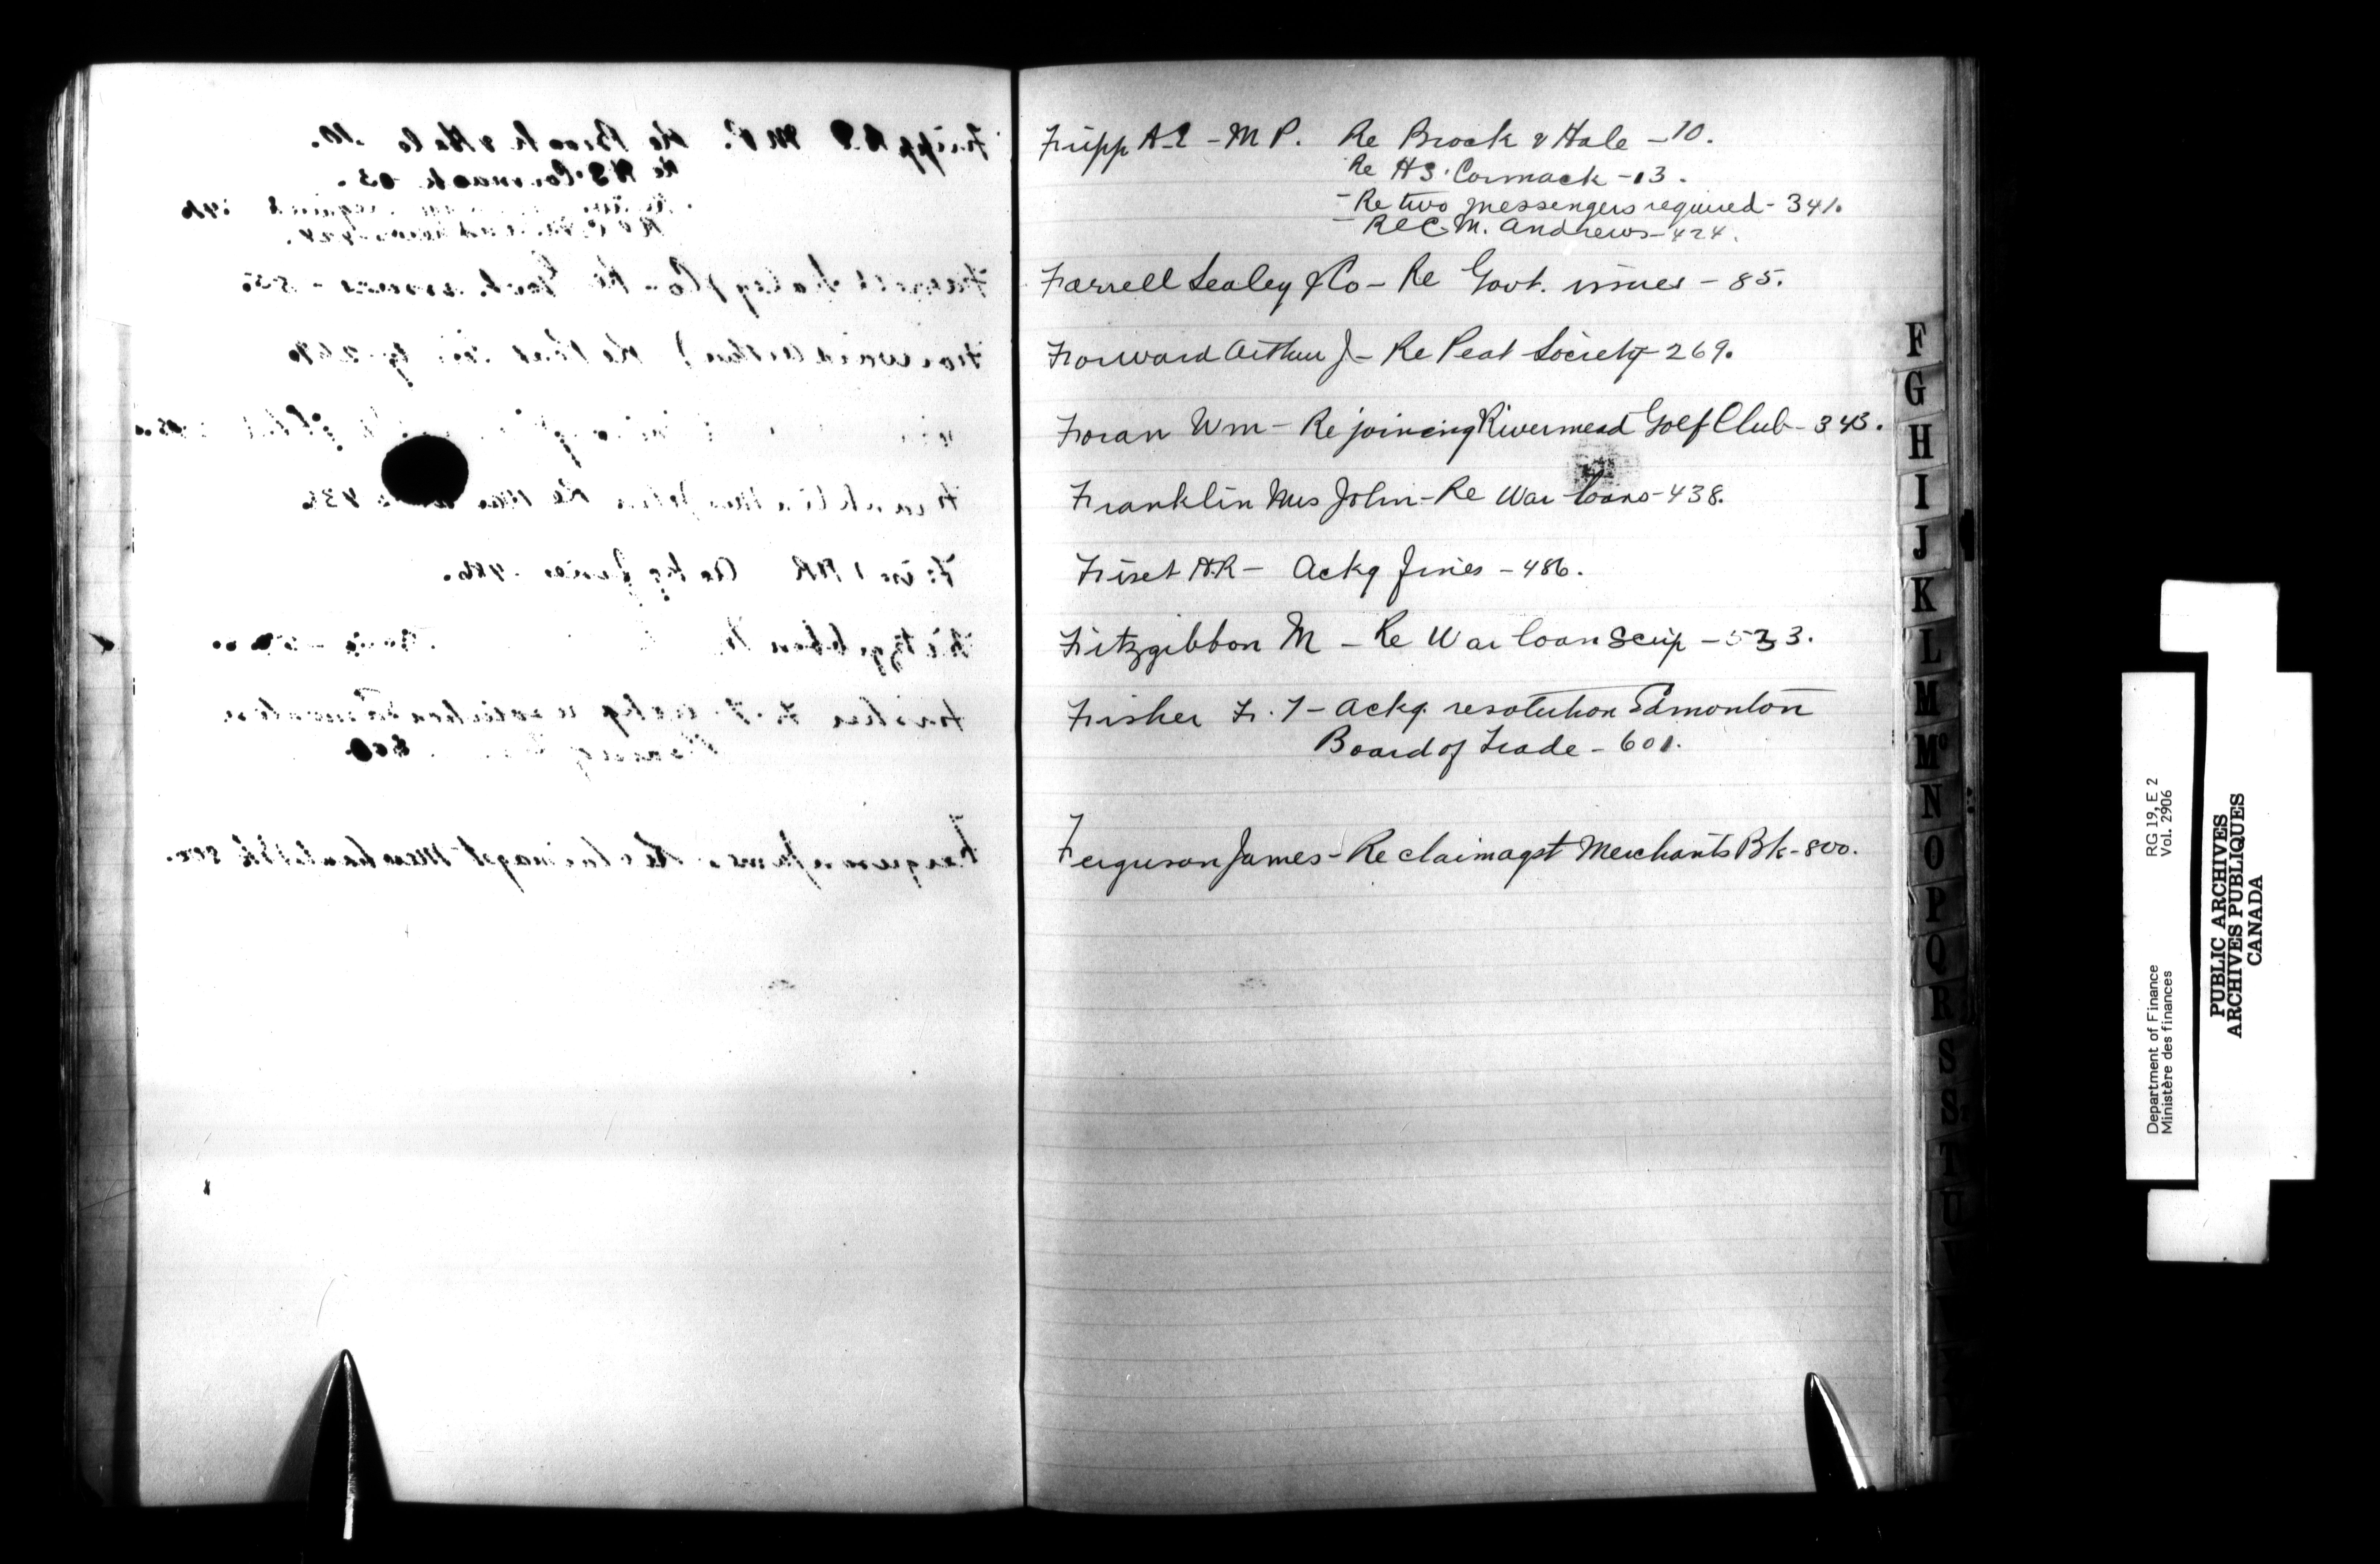 Fripp A E - M P. Re Brock & Hale - 10.
Re H S. Cormack - 13.
- Re two messengers required - 341.
- Re C. M. Andrews - 424.
Farrell Sealey & Co - Re Govt. issues - 85.
Forward Arthur J - Re Peat Society - 269.
Foran Wm - Re joining Rivermead Golf Club - 343.
Franklin Mrs John - Re War loans - 438.
Fiset A.R - Ackg fines - 486.
Fitzgibbon M - Re War loan Scrip - 533.
Fisher F. T - Ackg. resolution Edmonton
Board of Trade - 601.
Ferguson James - Re claim agst Merchants Bk - 800.
F
G
H
I
J
K
L
M
Mc
N
O
P
Q
R
S
S
T
U
RG 19, E 2
Vol. 2906
Department of Finance
Ministère des finances
PUBLIC ARCHIVES
ARCHIVES PUBLIQUES
CANADA